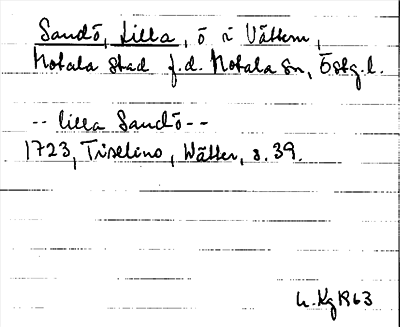 Sandö, Lilla, ö i Vättern,
Motala stad f.d. Motala sn, Östg.l.
-- lilla Sandö --
1723, Tiselius, Wätter, s. 39.
L. Kg 1963